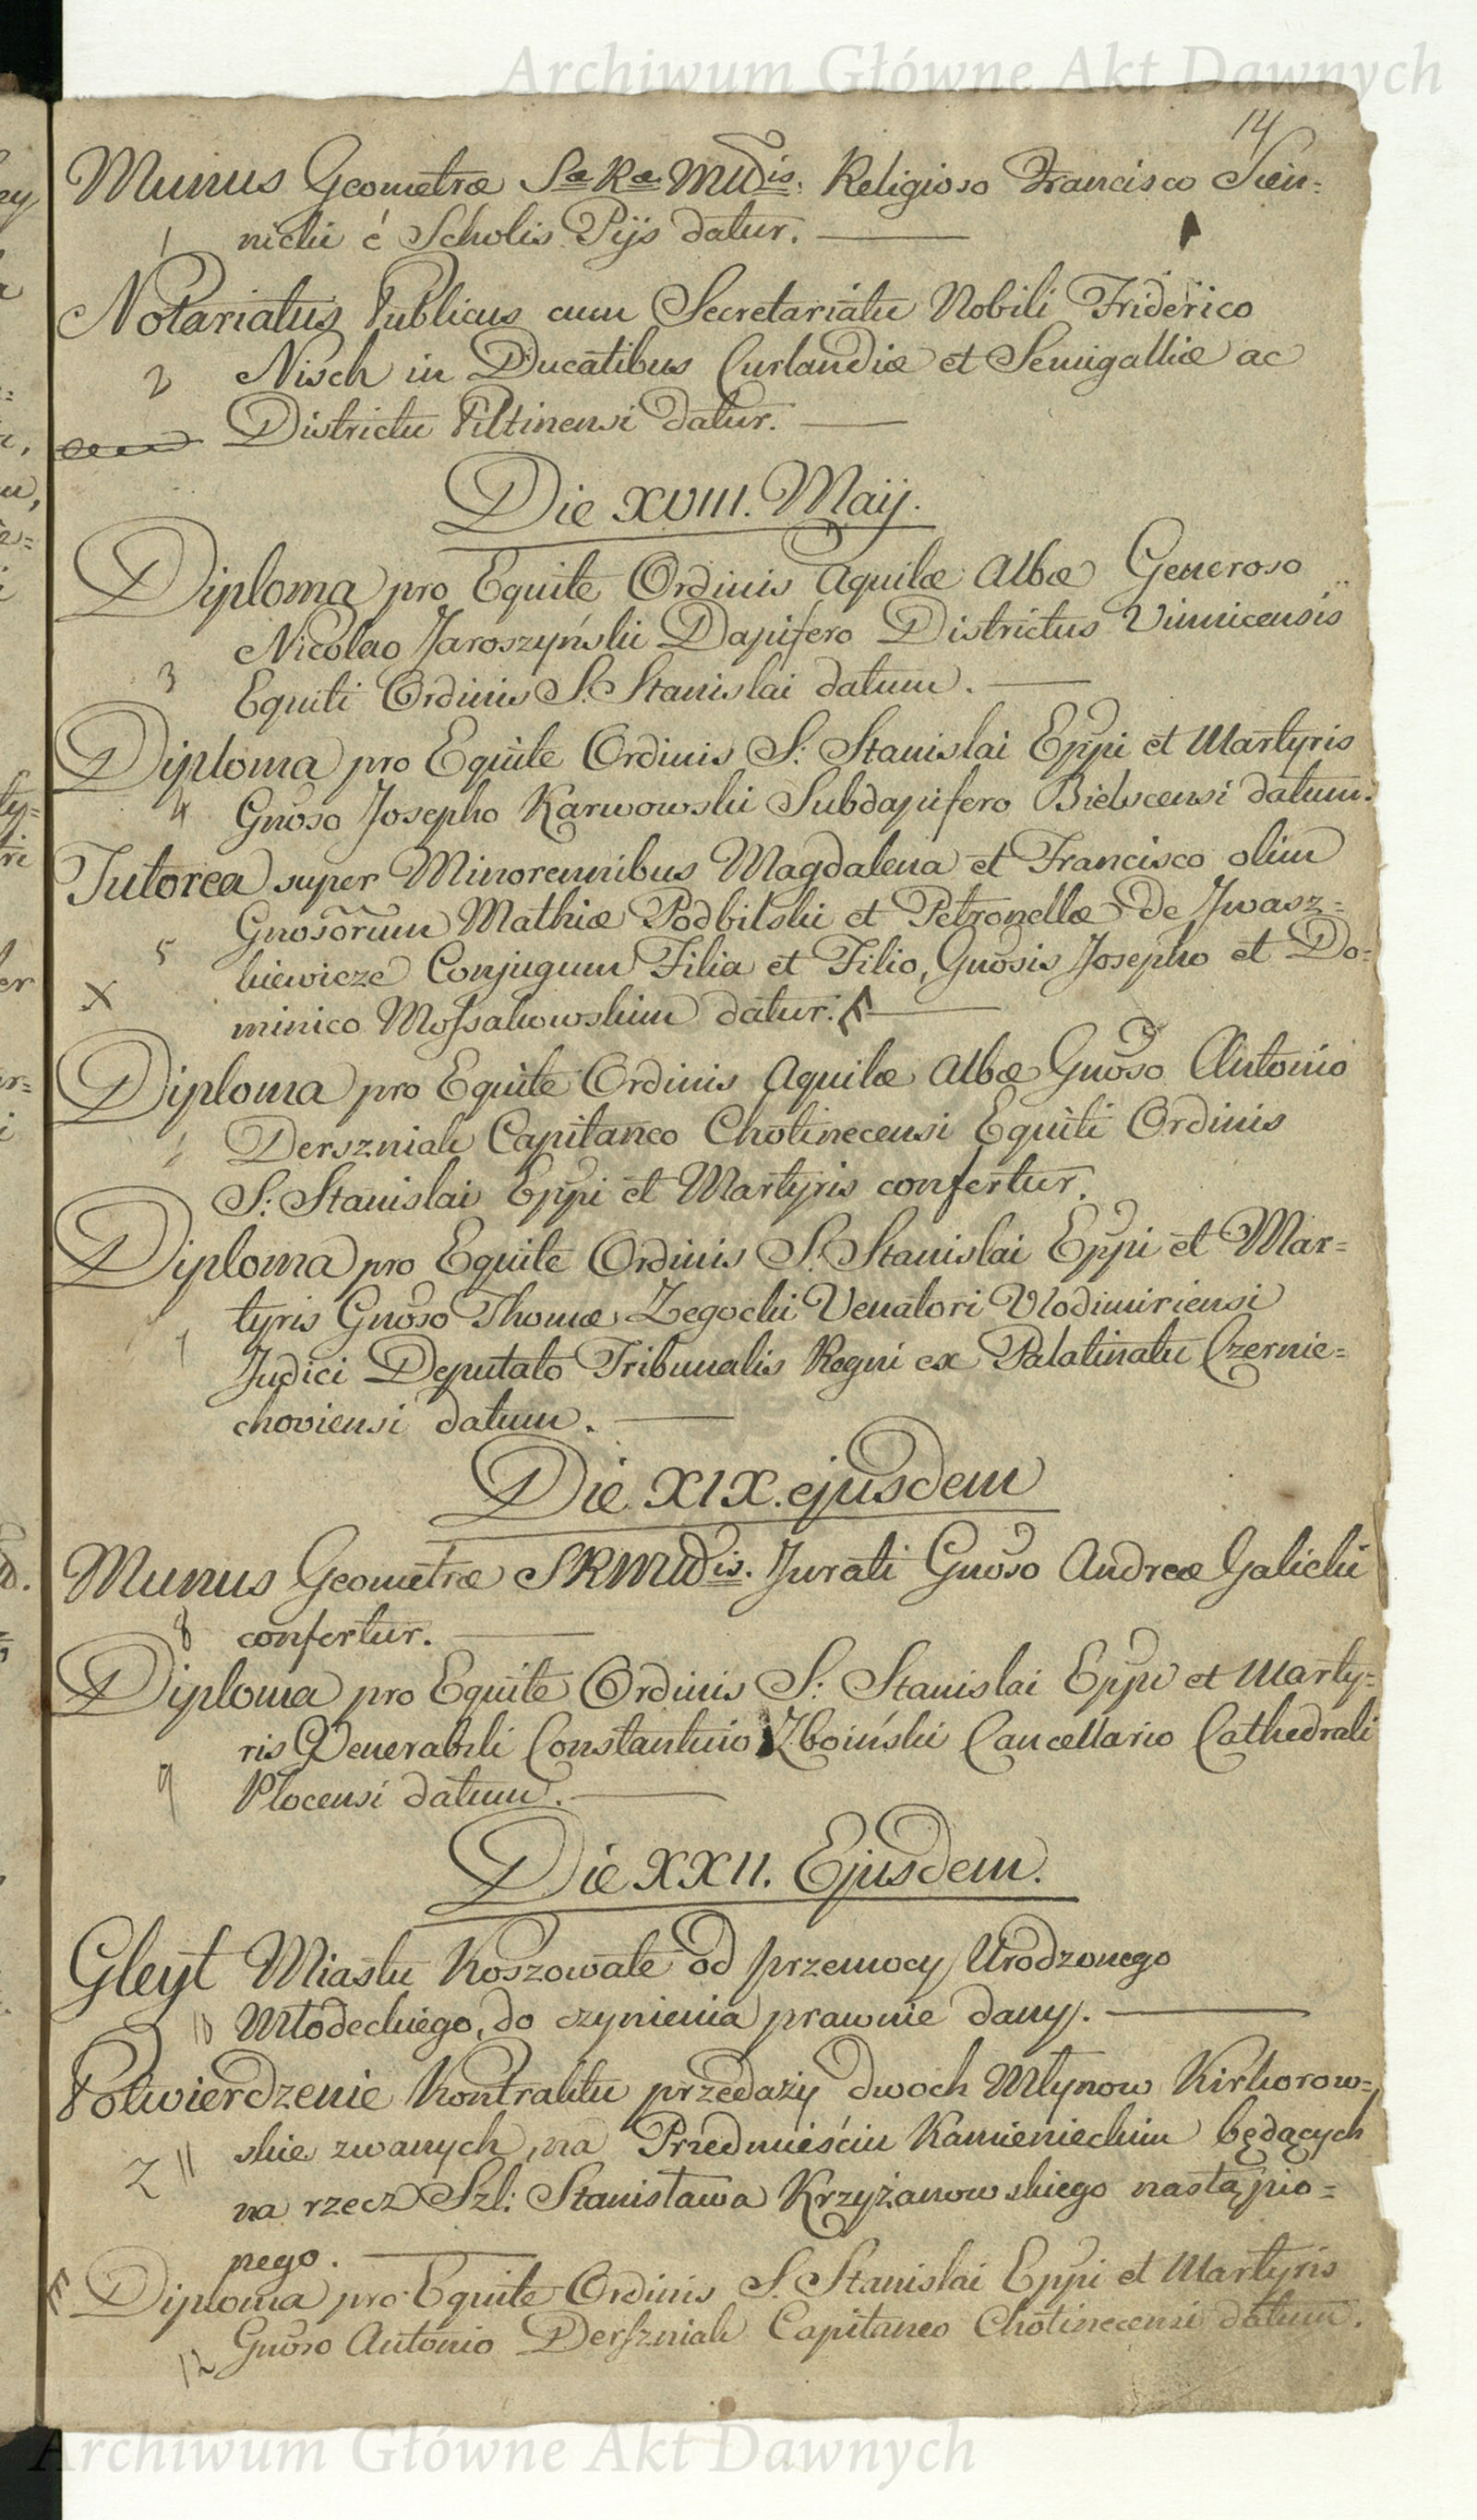 Archiwum Główne Akt Dawnych
14
Munus Geometræ Sæ Ræ Mttis. Religioso Francisco Sien=
1 nicki é Scholis Pijs datur.
Notariatus Publicus cum Secretariatu Nobili Friderico
2 Nisch in Ducatibus Curlandiæ et Semigalliæ ac
Districtu Piltinensi datur.
Die XVIII. Maij.
Diploma pro Equite Ordinis Aquilæ Albæ Generoso
Nicolao Jaroszyński Dapifero Districtus Vinnicensis
3 Equiti Ordinis S. Stanislai datum.
Diploma pro Equite Ordinis S: Stanislai Eppi et Martyris
4 Gnoso Josepho Karwowski Subdapifero Bielscensi datum.
Tutorea super Minorennibus Magdalena et Francisco olim
Gnosorum Mathiæ Podbilski et Petronellæ de Jwasz=
5 kiewicze Conjugum Filia et Filio, Gnosis Josepho et Do=
X minico Mossakowskim datur.
Diploma pro Equite Ordinis Aquilæ Albæ Gnoso Antonio
6 Derszniak Capitaneo Chotinecensi Equiti Ordinis
S: Stanislai Eppi et Martyris confertur.
Diploma pro Equite Ordinis S. Stanislai Eppi et Mar=
tyris Gnoso Thomæ Zegocki Venatori Vlodimiriensi
7 Judici Deputato Tribunalis Regni ex Palatinatu Czernie=
choviensi datum.
Die XIX. ejusdem
Munus Geometræ SRMttis. Jurati Gnoso Andreæ Galicki
8 confertur.
Diploma pro Equite Ordinis S: Stanislai Eppi et Marty=
ris Venerabili Constantino Zboiński Cancellario Cathedrali
9 Plocensi datum.
Die XXII. Ejusdem.
Gleyt Miastu Koszowate od przemocy Urodzonego
10 Młodeckiego, do czynienia prawnie dany.
Potwierdzenie Kontraktu przedaży dwoch Młynow Kirkorow=
Z 11 skie zwanych, na Przedmieściu Kamienieckim będących
na rzecz Szl: Stanisława Krzyżanowskiego nastąpio=
nego.
Diploma pro Equite Ordinis S. Stanislai Eppi et Martyris
12 Gnoso Antonio Derszniak Capitaneo Chotinecensi datum.
Archiwum Główne Akt Dawnych